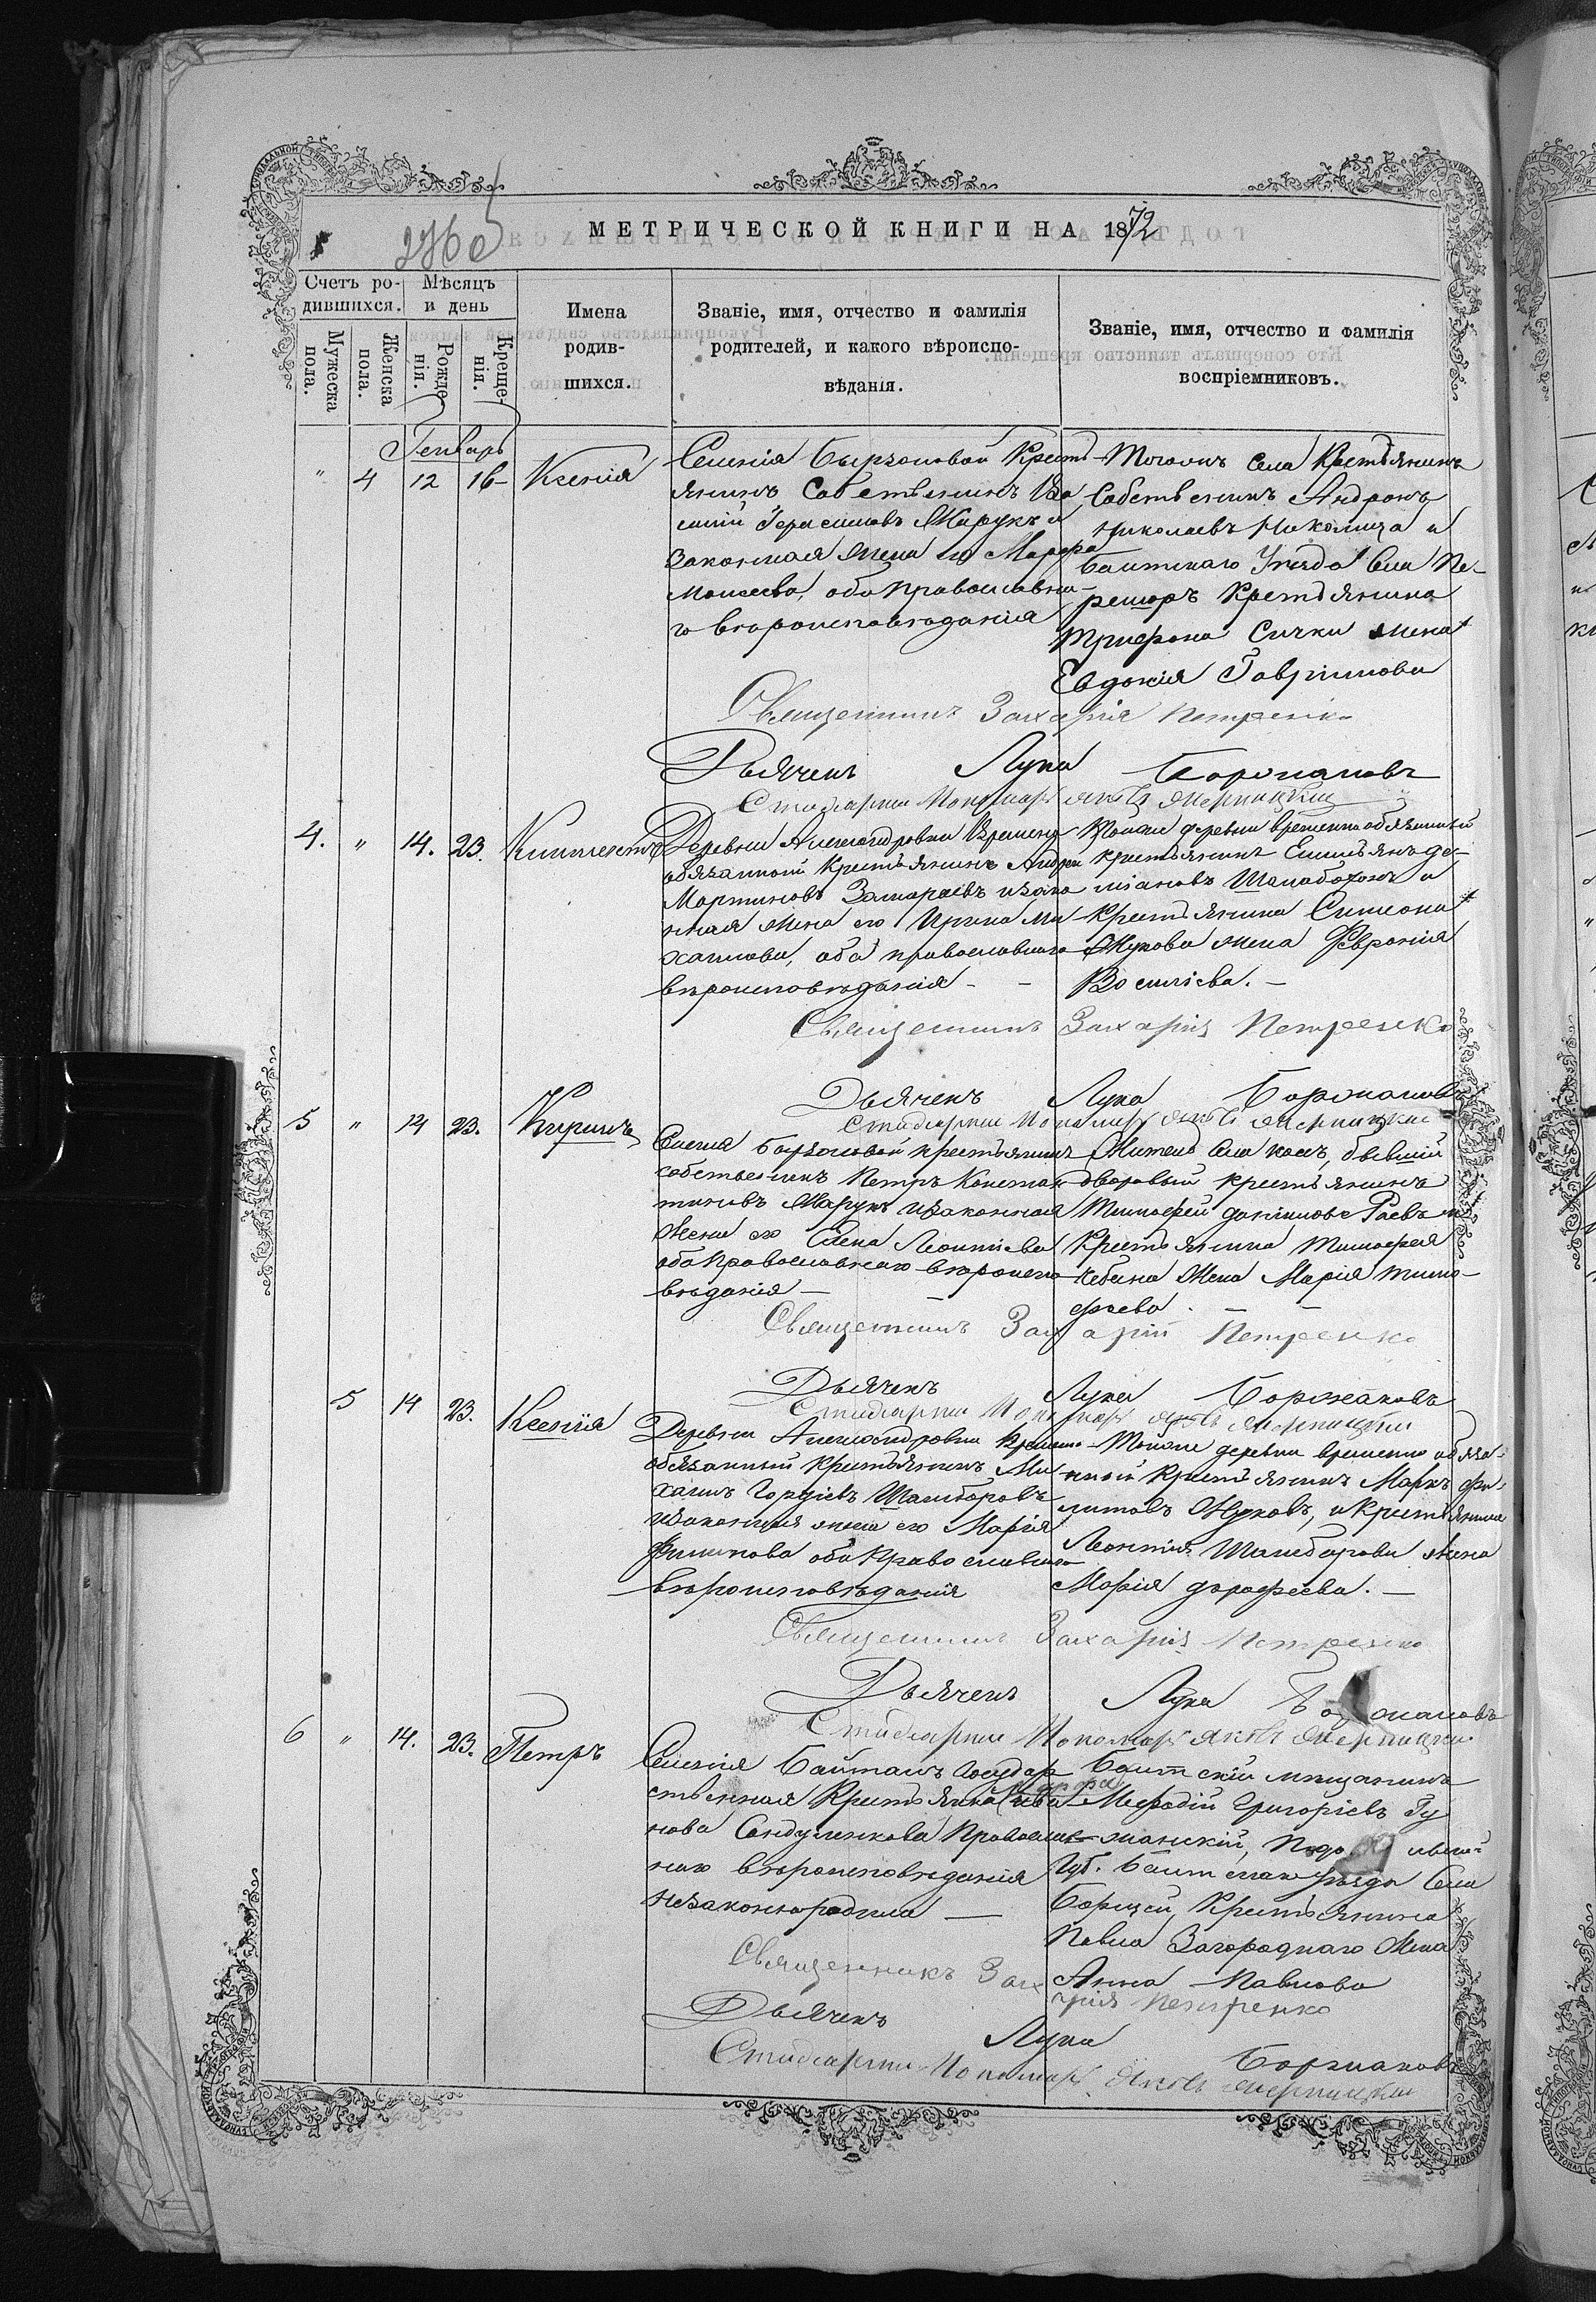 МЕТРИЧЕСКОЙ КНИГИ НА 1872
Счетъ ро-
дившихся.
Мѣсяцъ
и день
Мужеска
пола.
Женска
пола.
Рожде-
нія.
Креще-
нія.
Имена
родив-
шихся.
Званіе, имя, отчество и фамилія
родителей, и какого вѣроиспо-
вѣданія.
Званіе, имя, отчество и фамилія
воспріемниковъ.
Генварь
" 4 12 16 Ксенія
Селенія Бырзоловой Кресть
янинъ Собственникъ
Герасимовъ Марукъ и
Законная жена его Марфа
Моисеева, оба православна-
го вѣроисповѣданія
Тогожъ села Крестьянинъ
Собственникъ Андронъ
Николаевъ Николица и
Балтскаго Уѣзда Села Пе-
решоръ Крестьянина
Трифона Сички жена
Евдокія Гаврилова
Священникъ Захарія Петренко
Дьячекъ Лука Боржаковъ
Стихарный Пономарь Яковъ
4. " 14. 23. Климентъ
Деревни Александровки Временно
обязанный Крестьянинъ Андрей
Мартиновъ Замараевъ изако
нная жена его Ирина Ми
хаилова, оба православнаго
вѣроисповѣданія
Тойже деревни временно обязанный
крестьянинъ Емильянъ де-
міановъ и
Крестьянина Симеона
Жукова жена Февронія
Василіева.
Священникъ Захарія Петренко
Дьячекъ Лука Боржаковъ
Стихарный Пономарь Яковъ
5 " 14 23. Кирилъ
Селенія Бырзоловой крестьянинъ
собственникъ Петръ Констан
тиновъ Марукъ изаконная
жена его Елена Леонтіева
оба Православнаго вѣроиспо
вѣданія
Житель Села бывшій
дворовый крестьянинъ
Тимофей даніиловъ Раевъ и
Крестьянина Тимофея
Чебана жена Марія Тимо-
феева.
Священникъ Захарій Петренко
Дьячекъ Лука Боржаковъ
Стихарный Пономарь Яковъ
5 14 23. Ксенія
Деревни Александровки Временно
обязанный Крестьянинъ Ми
хаилъ Гордіевъ Шамборовъ
изаконная жена его Марія
Филипова оба Православнаго
вѣроисповѣданія
Тойже деревни временно обяза-
нный Крестьянинъ Маркъ Фи-
липовъ Жуковъ, и Крестьянина
Леонтія Шамборова жена
Марія дорофеева.
Священникъ Захарія Петренко
Дьячекъ Лука Боржаковъ
Стихарный Пономарь Яковъ
6 " 14. 23. Петръ
Селенія Байталъ Государ
ственная Крестьянка
нова Сандуленкова Православ
наго вѣроисповѣданія
незаконнородила
Балтскій мѣщанинъ
Мефодій Григоріевъ Гу
манскій,
Губ. Балтскаго уѣзда Села
Борщей, Крестьянина
Павла Загороднаго жена
Анна Павлова
Священникъ Захарія Петренко
Дьячекъ Лука Боржаковъ
Стихарный Пономарь Яковъ